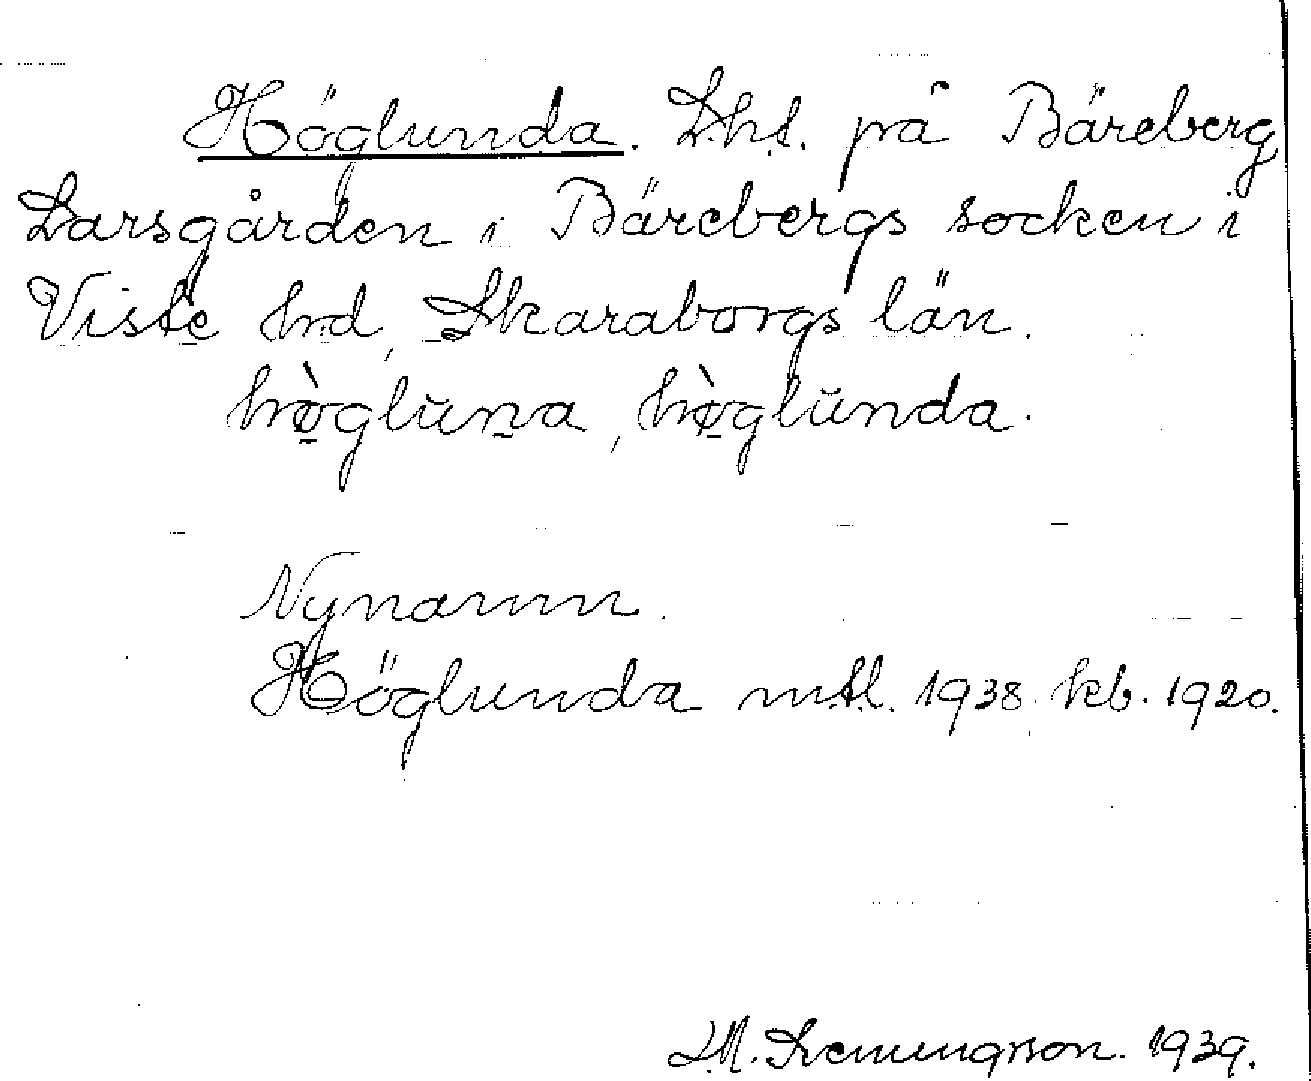 Höglunda. Lhs. på Bäreberg
Larsgården i Bärebergs socken i
Viste hd, Skaraborgs län.
hø̀glŭna, hø̀glŭnda.
Nynamn.
Höglunda mtl. 1938. kb. 1920.
1939.